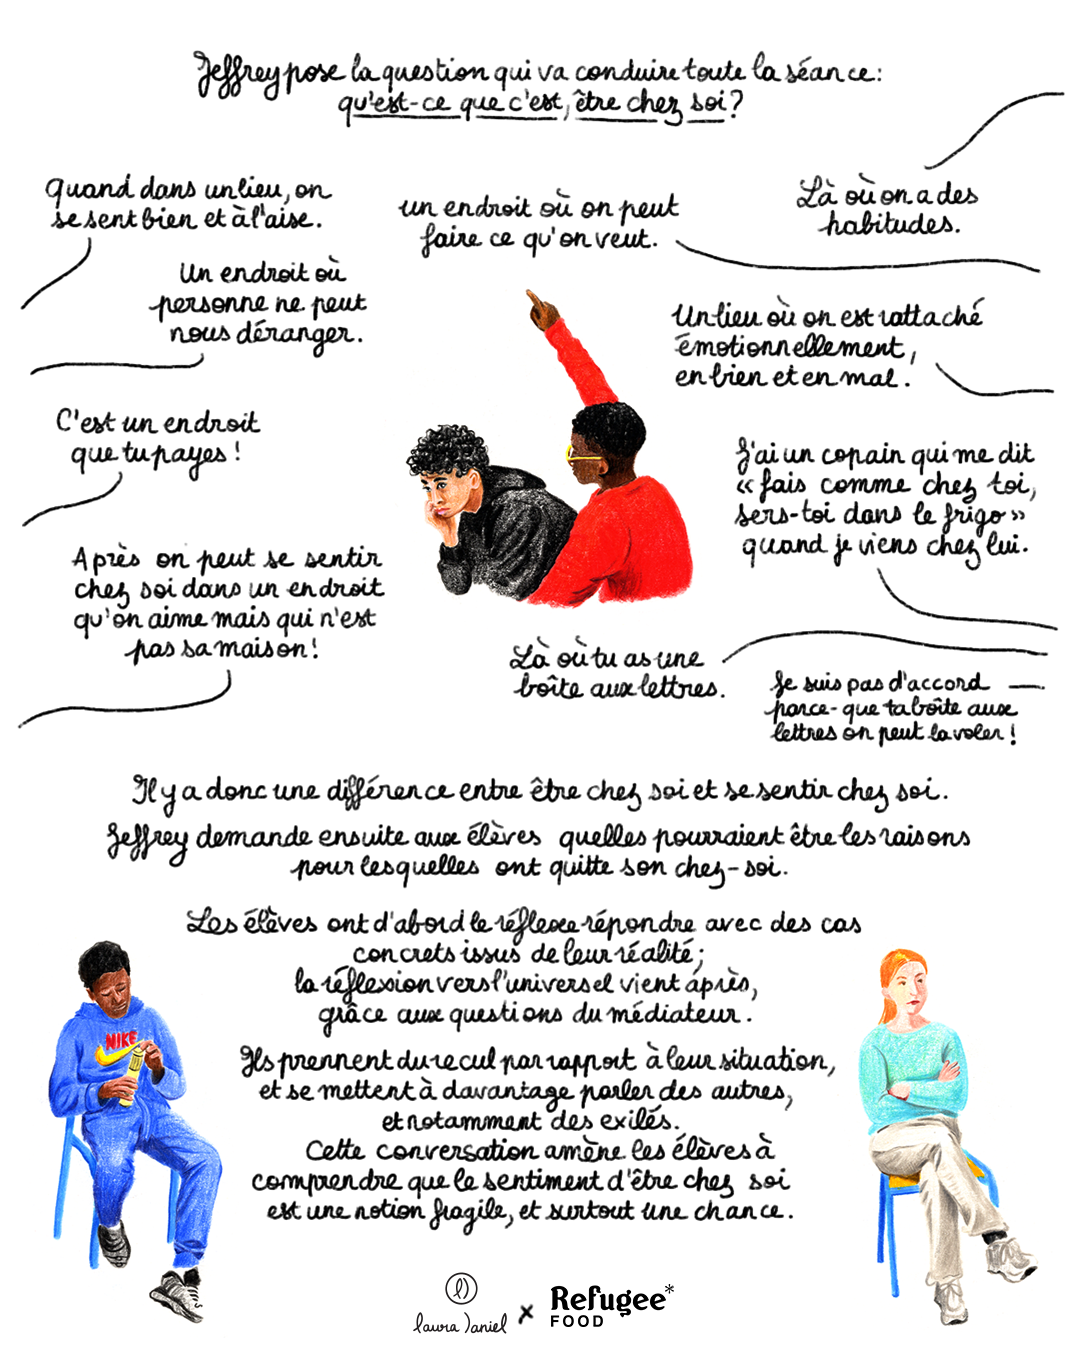 Jeffrey pose la question qui va conduire toute la séance :
qu'est-ce que c'est, être chez soi ?
Quand dans un lieu, on
se sent bien et à l'aise.
un endroit où on peut
faire ce qu'on veut.
Là où on a des
habitudes.
Un endroit où
personne ne peut
nous déranger.
Un lieu où on est rattaché
émotionnellement,
en bien et en mal.
C'est un endroit
que tu payes !
J'ai un copain qui me dit
« fais comme chez toi,
sers-toi dans le frigo »
quand je viens chez lui.
Après on peut se sentir
chez soi dans un endroit
qu'on aime mais qui n'est
pas sa maison !
Là où tu as une
boîte aux lettres.
Je suis pas d'accord
parce-que ta boîte aux
lettres on peut la voler !
Il y a donc une différence entre être chez soi et se sentir chez soi.
Jeffrey demande ensuite aux élèves quelles pourraient être les raisons
pour lesquelles ont quitte son chez-soi.
Les élèves ont d'abord le réflexe répondre avec des cas
concrets issus de leur réalité ;
la réflexion vers l'universel vient après,
grâce aux questions du médiateur.
Ils prennent du recul par rapport à leur situation,
et se mettent à davantage parler des autres,
et notamment des exilés.
Cette conversation amène les élèves à
comprendre que le sentiment d'être chez soi
est une notion fragile, et surtout une chance.
NIKE
laura Daniel x Refugee*
FOOD